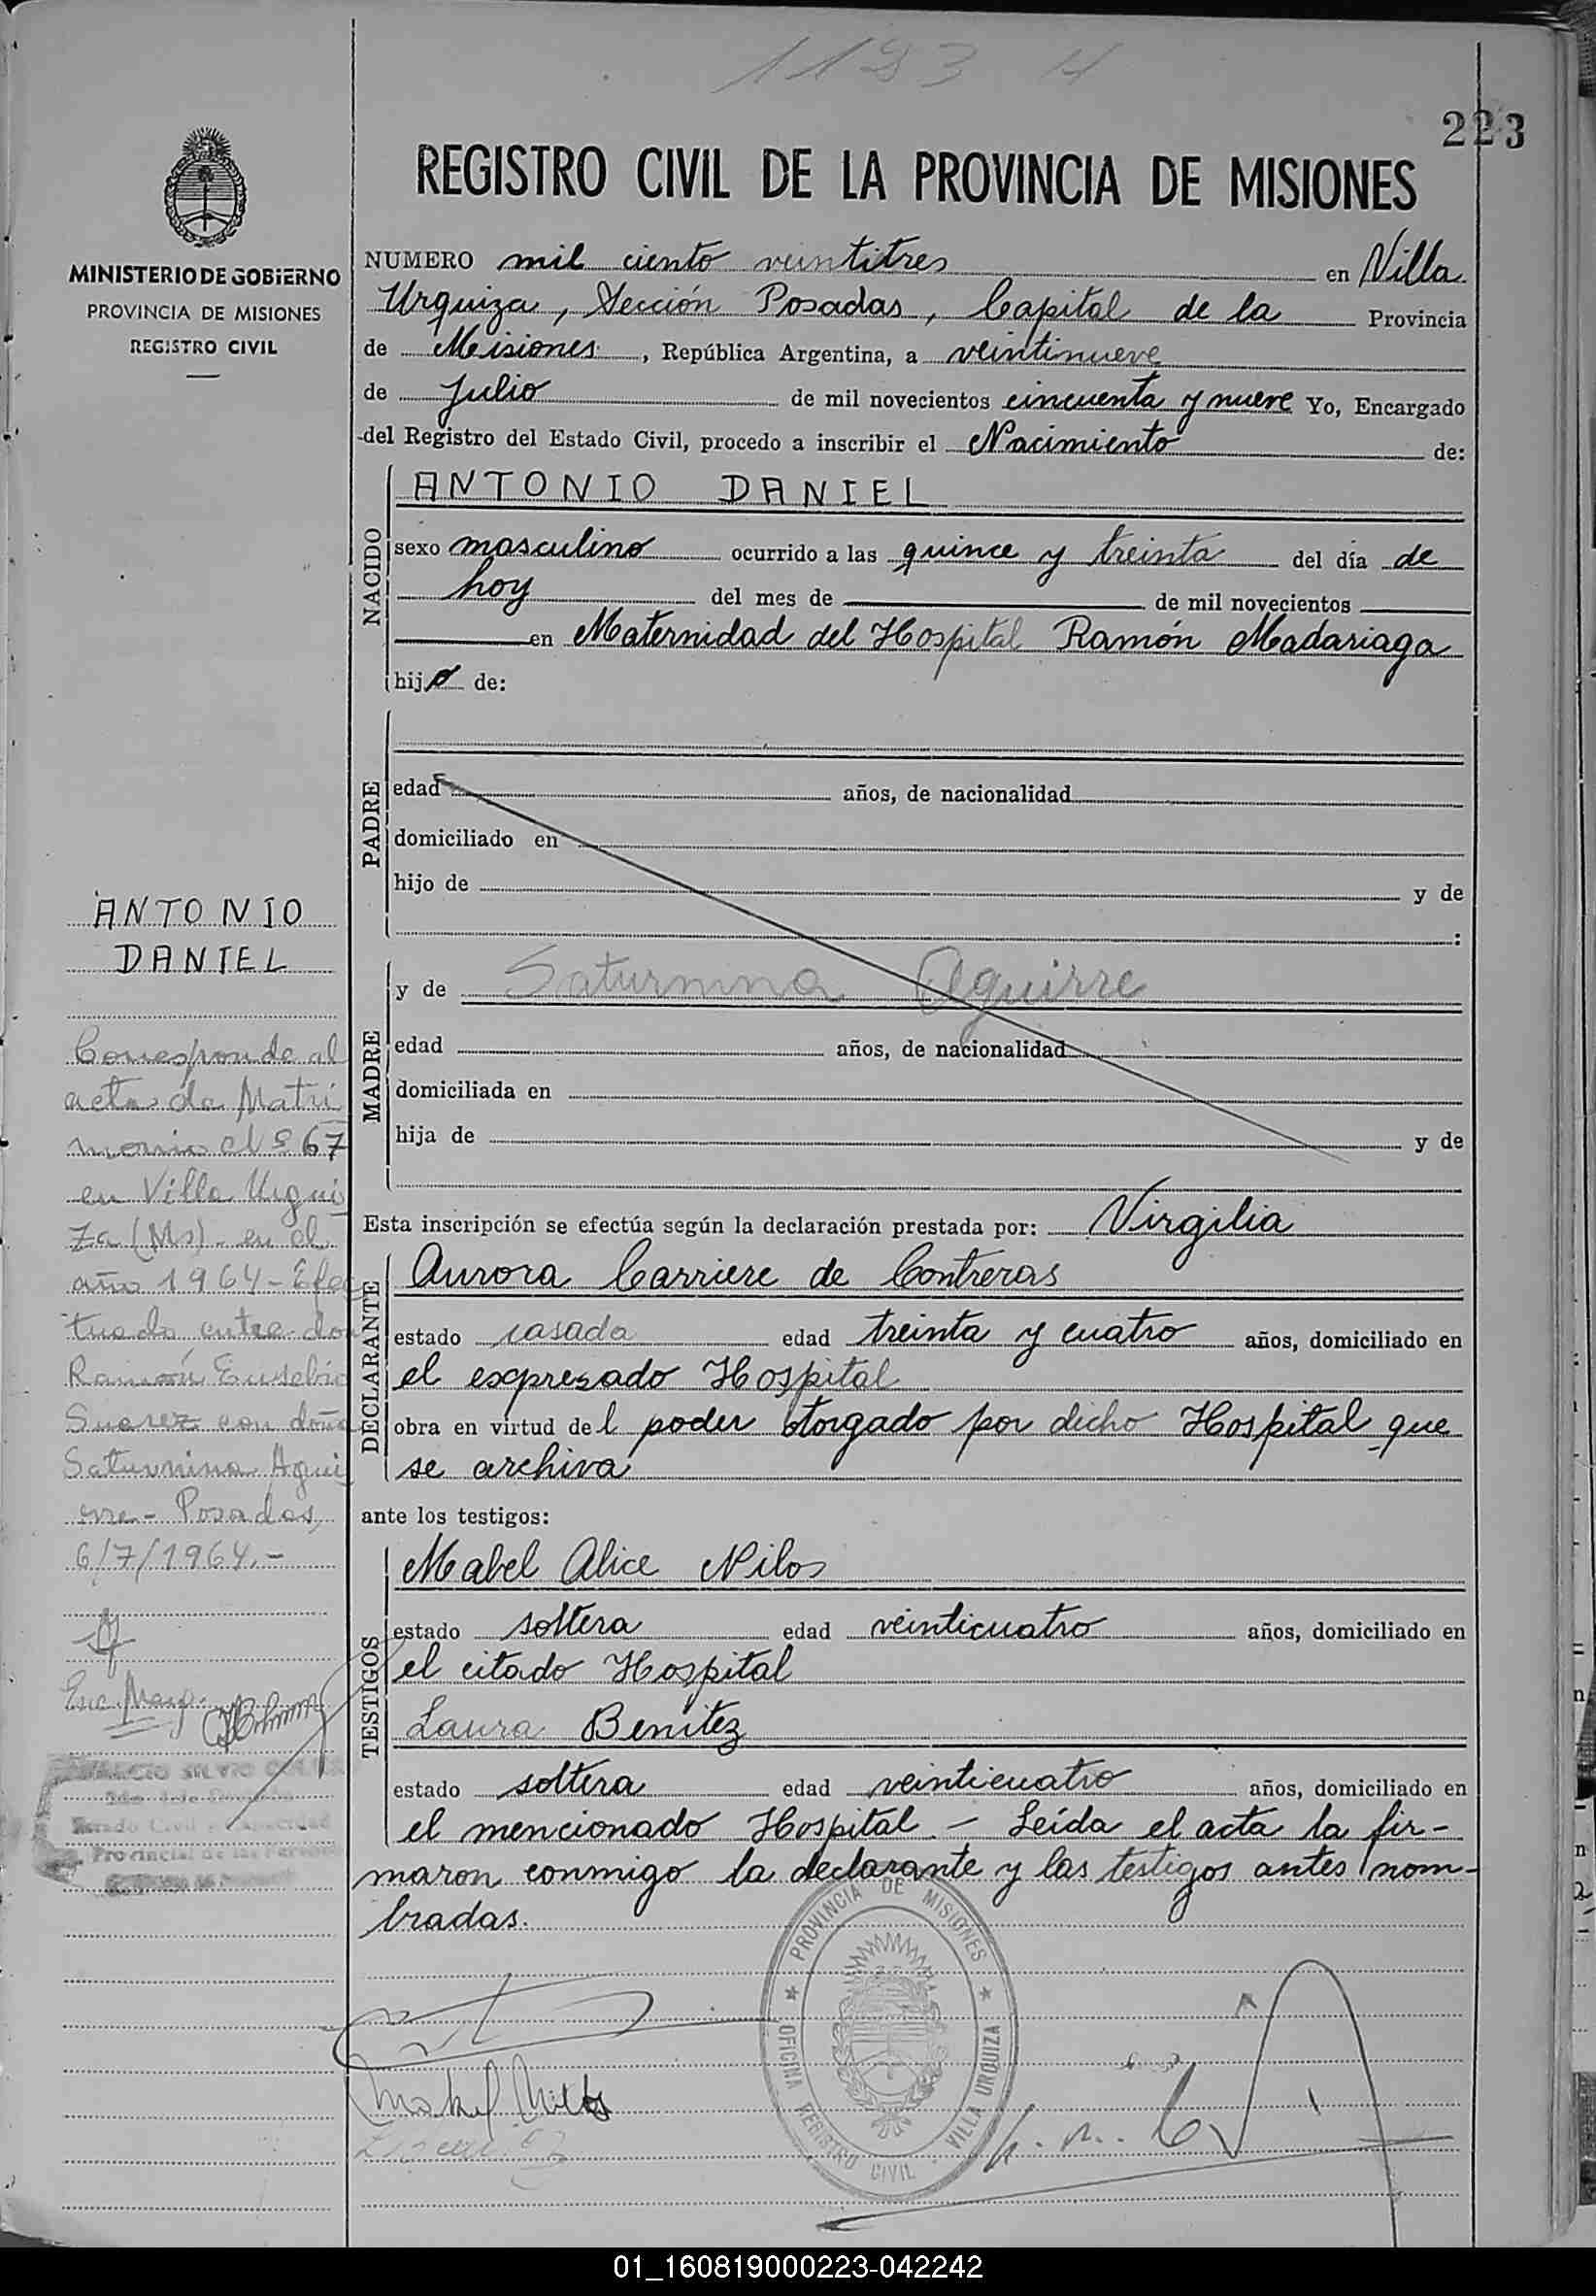 1123 H
223
REGISTRO CIVIL DE LA PROVINCIA DE MISIONES
MINISTERIO DE GOBIERNO
PROVINCIA DE MISIONES
REGISTRO CIVIL
NUMERO mil ciento veintitres en Villa
Urquiza, Sección Posadas, Capital de la Provincia
de Misiones, República Argentina, a veintinueve
de Julio de mil novecientos cincuenta y nueve Yo, Encargado
del Registro del Estado Civil, procedo a inscribir el Nacimiento de:
NACIDO
ANTONIO DANIEL
sexo masculino ocurrido a las quince y treinta del día de
hoy del mes de de mil novecientos
en Maternidad del Hospital Ramón Madariaga
hijo de:
PADRE
edad años, de nacionalidad
domiciliado en
hijo de y de
:
MADRE
y de Saturnina Aguirre
edad años, de nacionalidad
domiciliada en
hija de y de
Esta inscripción se efectúa según la declaración prestada por: Virgilia
DECLARANTE
Aurora Carriere de Contreras
estado casada edad treinta y cuatro años, domiciliado en
el expresado Hospital
obra en virtud del poder otorgado por dicho Hospital que
se archiva
ante los testigos:
TESTIGOS
Mabel Alice Nilos
estado soltera edad veinticuatro años, domiciliado en
el citado Hospital
Laura Benitez
estado soltera edad veinticuatro años, domiciliado en
el mencionado Hospital.- Leída el acta la fir-
maron conmigo la declarante y las testigos antes nom-
bradas.
ANTONIO
DANIEL
Corresponde al
acta de Matri
monio Nº 67
en Villa Urqui
za (Ms). en el
año 1964 - Efec
tuado entre don
Ramón Eusebio
Suarez con doña
Saturnina Agui
rre - Posadas,
6/7/1964.-
PROVINCIA DE MISIONES
OFICINA REGISTRO CIVIL - VILLA URQUIZA
01_160819000223-042242